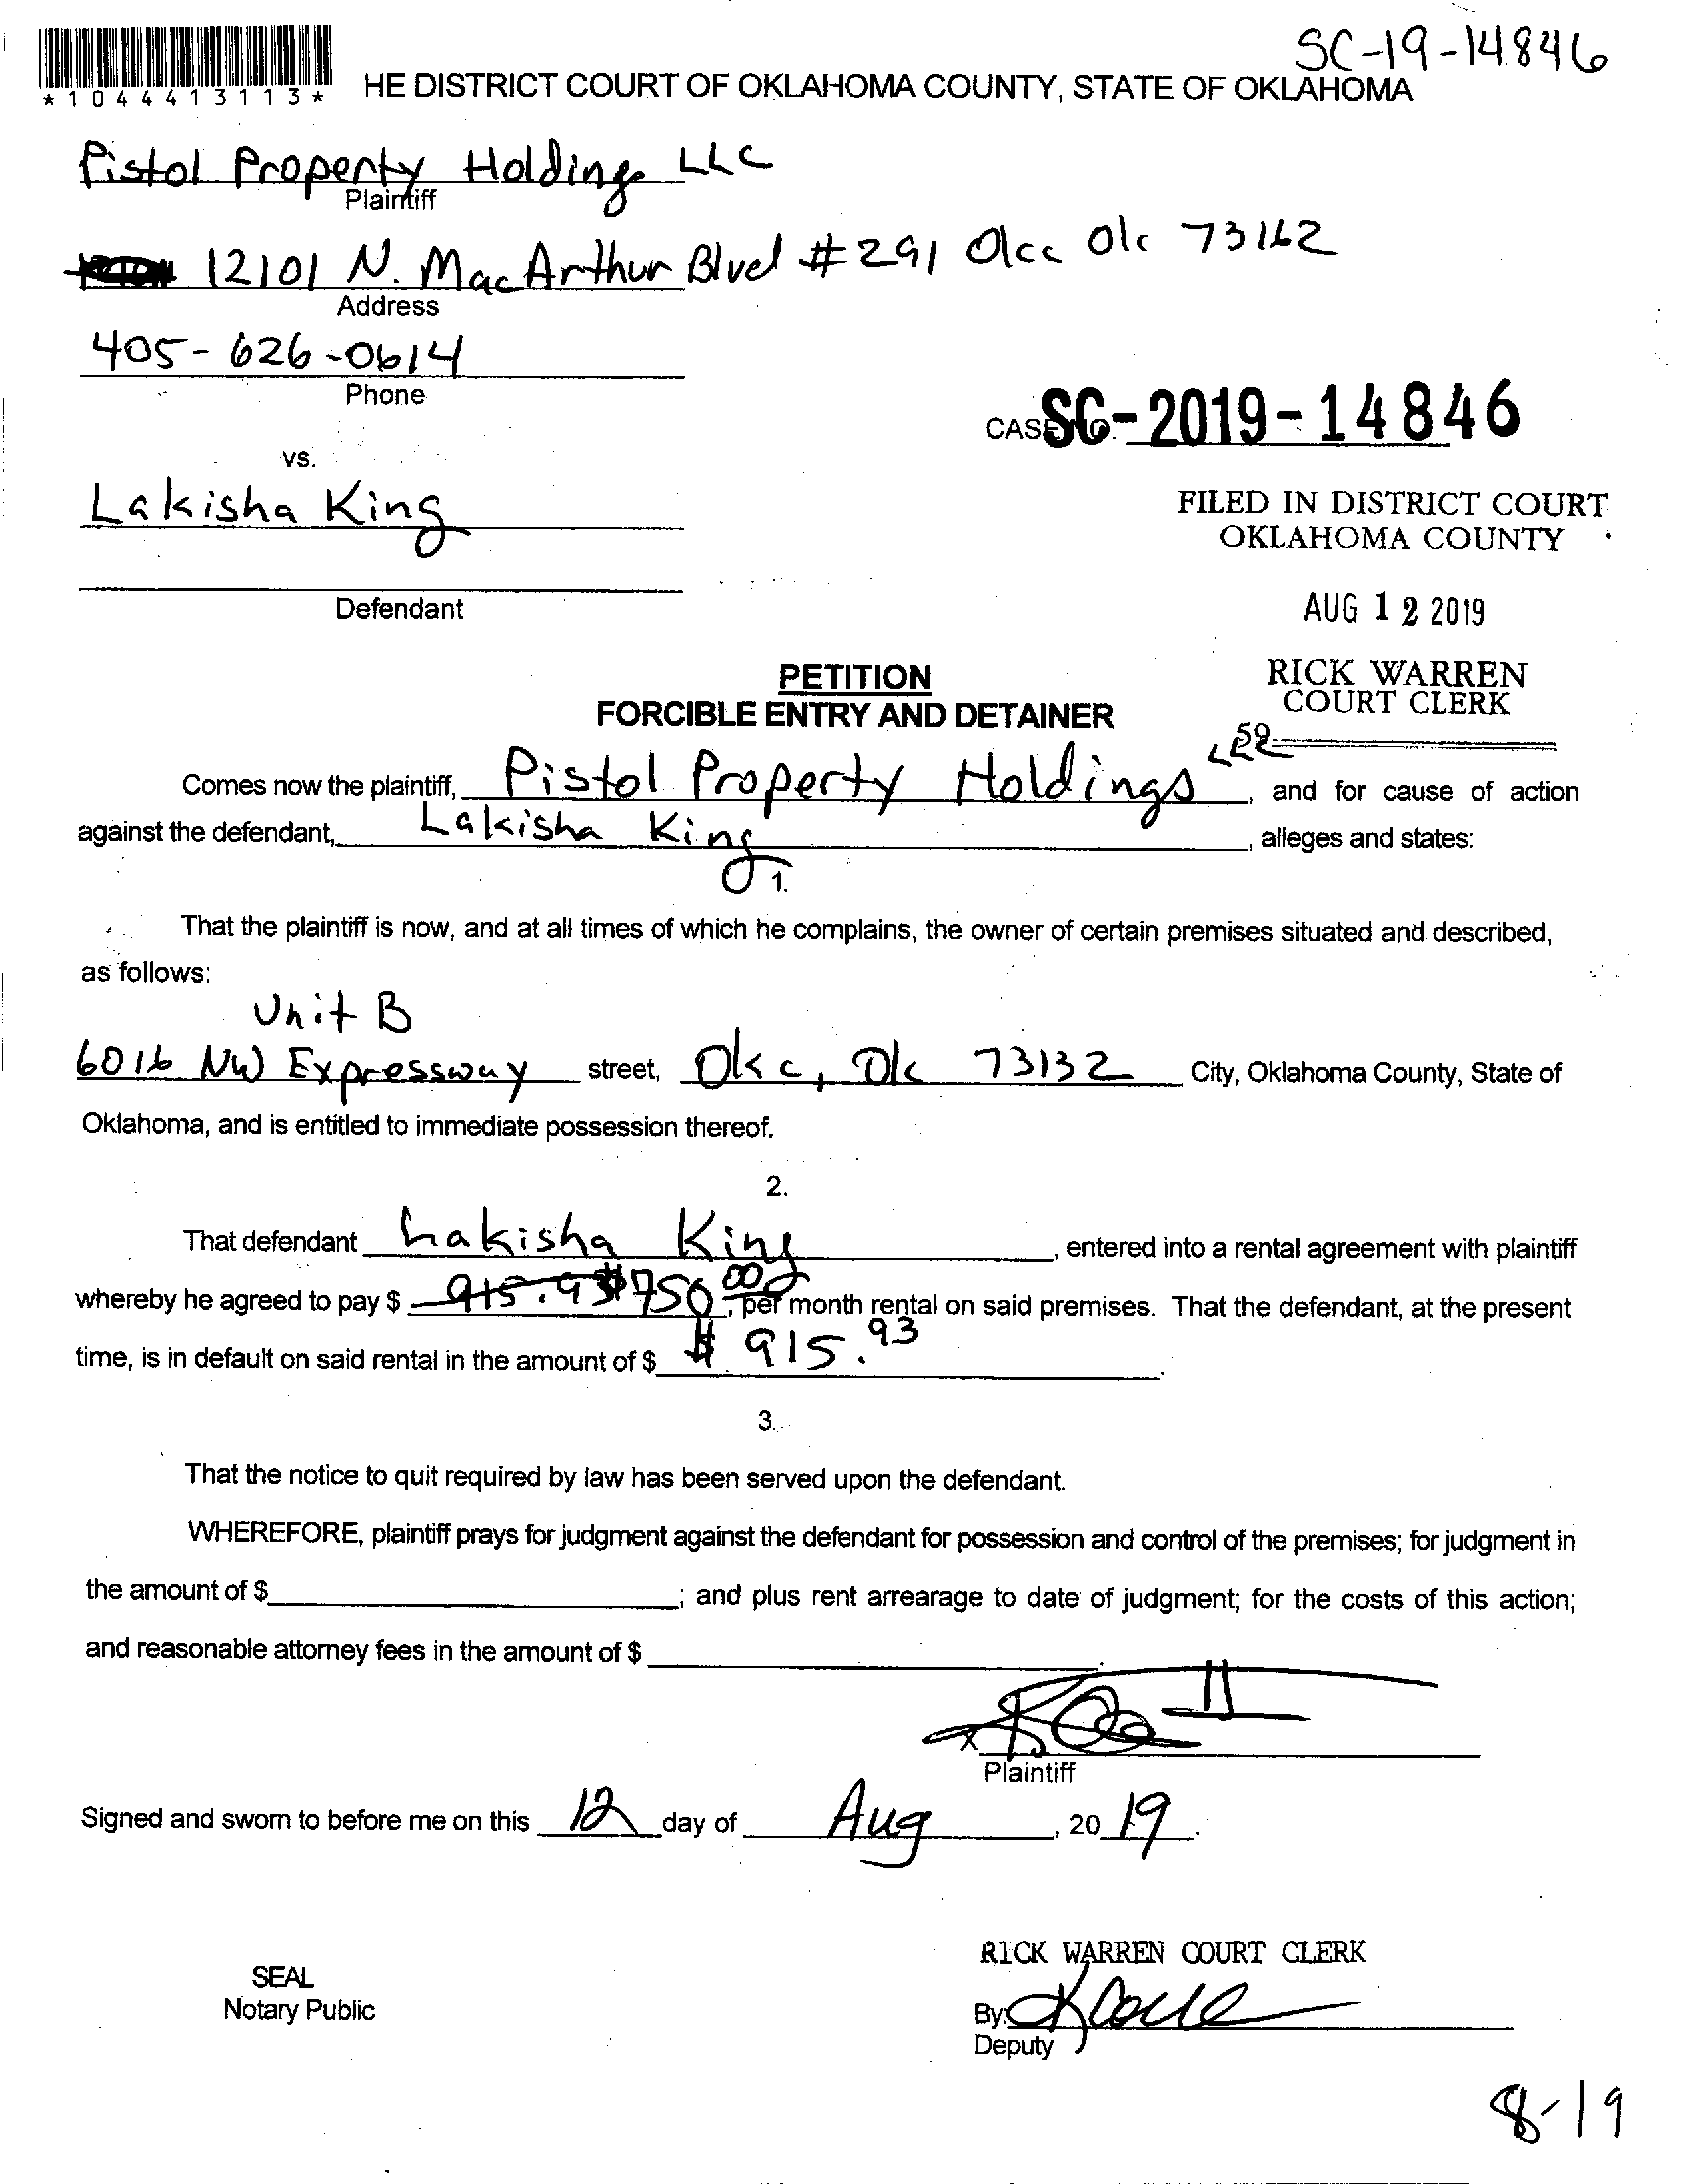 SC-19-14846
*1044413113*
HE DISTRICT COURT OF OKLAHOMA COUNTY, STATE OF OKLAHOMA
Pistol Property Holding LLC
Plaintiff
12101 N. MacArthur Blvd #291 Okc Ok 73162
Address
405-626-0614
Phone
CASE NO. SC-2019-14846
vs.
Lakisha King
FILED IN DISTRICT COURT
OKLAHOMA COUNTY
Defendant
AUG 12 2019
PETITION
FORCIBLE ENTRY AND DETAINER
RICK WARREN
COURT CLERK
52
Comes now the plaintiff, Pistol Property Holdings LLC, and for cause of action
against the defendant, Lakisha King, alleges and states:
1.
That the plaintiff is now, and at all times of which he complains, the owner of certain premises situated and described,
as follows:
Unit B
6016 NW Expressway street, Okc, Ok 73132 City, Oklahoma County, State of
Oklahoma, and is entitled to immediate possession thereof.
2.
That defendant Lakisha King, entered into a rental agreement with plaintiff
whereby he agreed to pay $ 915.93 $750.00, per month rental on said premises. That the defendant, at the present
time, is in default on said rental in the amount of $ $915.93.
3.
That the notice to quit required by law has been served upon the defendant.
WHEREFORE, plaintiff prays for judgment against the defendant for possession and control of the premises; for judgment in
the amount of $; and plus rent arrearage to date of judgment; for the costs of this action;
and reasonable attorney fees in the amount of $.
x
Plaintiff
Signed and sworn to before me on this 12 day of Aug, 2019.
RICK WARREN COURT CLERK
SEAL
Notary Public
By:
Deputy
8-19